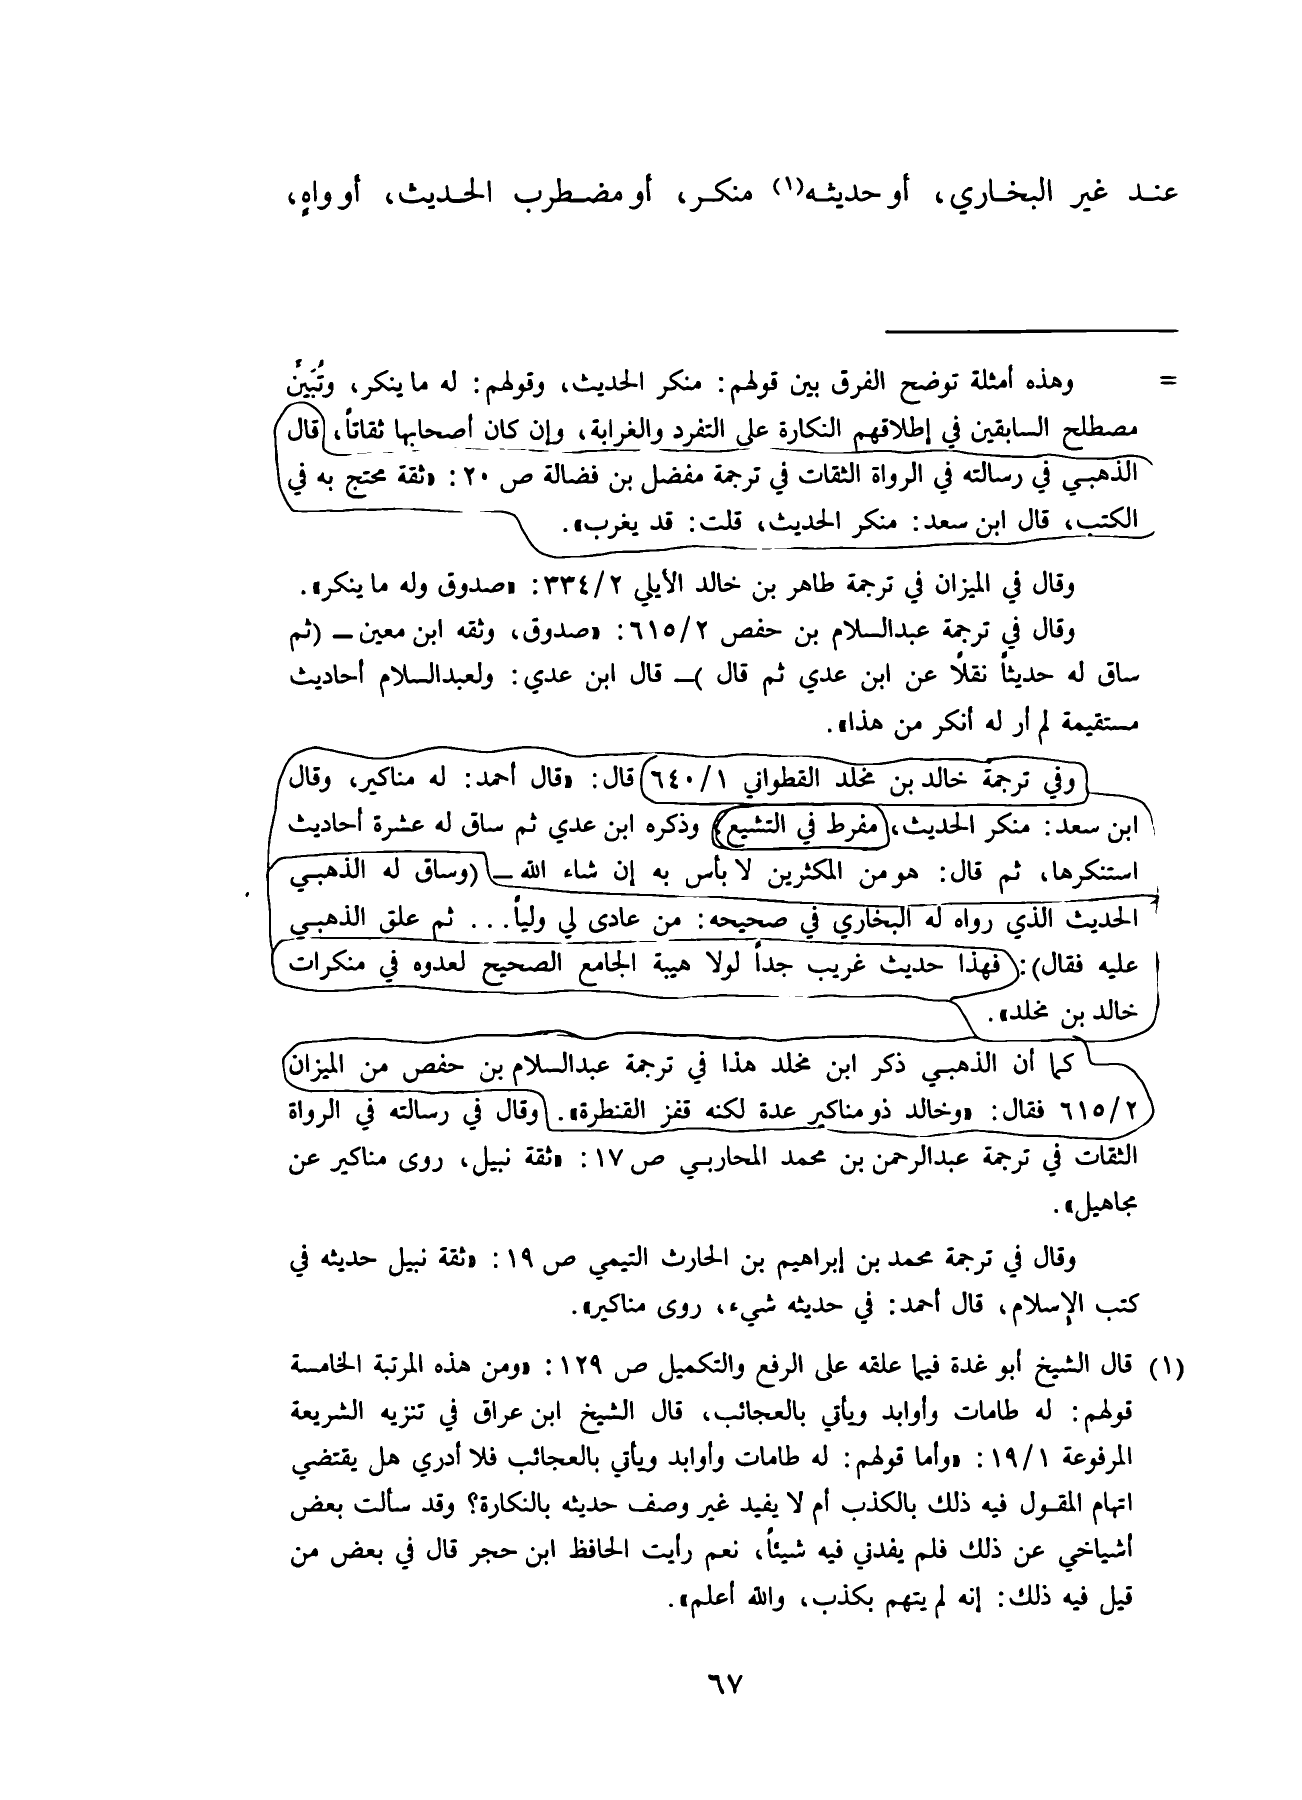 عنـد غير البخـاري، أو حديثـه(١) منكـر، أو مضـطرب الحـديث، أو واهٍ،
= وهذه أمثلة توضح الفرق بين قولهم: منكر الحديث، وقولهم: له ما ينكر، وتُبَينُ
مصطلح السابقين في إطلاقهم النكارة على التفرد والغرابة، وإن كان أصحابها ثقاتاً، قال
الذهبي في رسالته في الرواة الثقات في ترجمة مفضل بن فضالة ص ٢٠: «ثقة محتج به في
الكتب، قال ابن سعد: منكر الحديث، قلت: قد يغرب».
وقال في الميزان في ترجمة طاهر بن خالد الأيلي ٣٣٤/٢: «صدوق وله ما ينكر».
وقال في ترجمة عبدالسلام بن حفص ٦١٥/٢: «صدوق، وثقه ابن معين ــ (ثم
ساق له حديثاً نقلاً عن ابن عدي ثم قال )ــ قال ابن عدي: ولعبدالسلام أحاديث
مستقيمة لم أر له أنكر من هذا».
وفي ترجمة خالد بن مخلد القطواني ٦٤٠/١ قال: «قال أحمد: له مناكير، وقال
ابن سعد: منكر الحديث، مفرط في التشيع، وذكره ابن عدي ثم ساق له عشرة أحاديث
استنكرها، ثم قال: هو من المكثرين لا بأس به إن شاء الله ــ (وساق له الذهبي
الحديث الذي رواه له البخاري في صحيحه: من عادى لي ولياً... ثم علق الذهبي
عليه فقال): فهذا حديث غريب جداً لولا هيبة الجامع الصحيح لعدوه في منكرات
خالد بن مخلد».
كما أن الذهبي ذكر ابن مخلد هذا في ترجمة عبدالسلام بن حفص من الميزان
٦١٥/٢ فقال: «وخالد ذو مناكير عدة لكنه قفز القنطرة». وقال في رسالته في الرواة
الثقات في ترجمة عبدالرحمن بن محمد المحاربي ص ١٧: «ثقة نبيل، روى مناكير عن
مجاهيل».
وقال في ترجمة محمد بن إبراهيم بن الحارث التيمي ص ١٩: «ثقة نبيل حديثه في
كتب الإسلام، قال أحمد: في حديثه شيء، روى مناكير».
(١) قال الشيخ أبو غدة فيما علقه على الرفع والتكميل ص ١٢٩: «ومن هذه المرتبة الخامسة
قولهم: له طامات وأوابد ويأتي بالعجائب، قال الشيخ ابن عراق في تنزيه الشريعة
المرفوعة ١٩/١: «وأما قولهم: له طامات وأوابد ويأتي بالعجائب فلا أدري هل يقتضي
اتهام المقـول فيه ذلك بالكذب أم لا يفيد غير وصف حديثه بالنكارة؟ وقد سألت بعض
أشياخي عن ذلك فلم يفدني فيه شيئاً، نعم رأيت الحافظ ابن حجر قال في بعض من
قيل فيه ذلك: إنه لم يتهم بكذب، والله أعلم».
٦٧